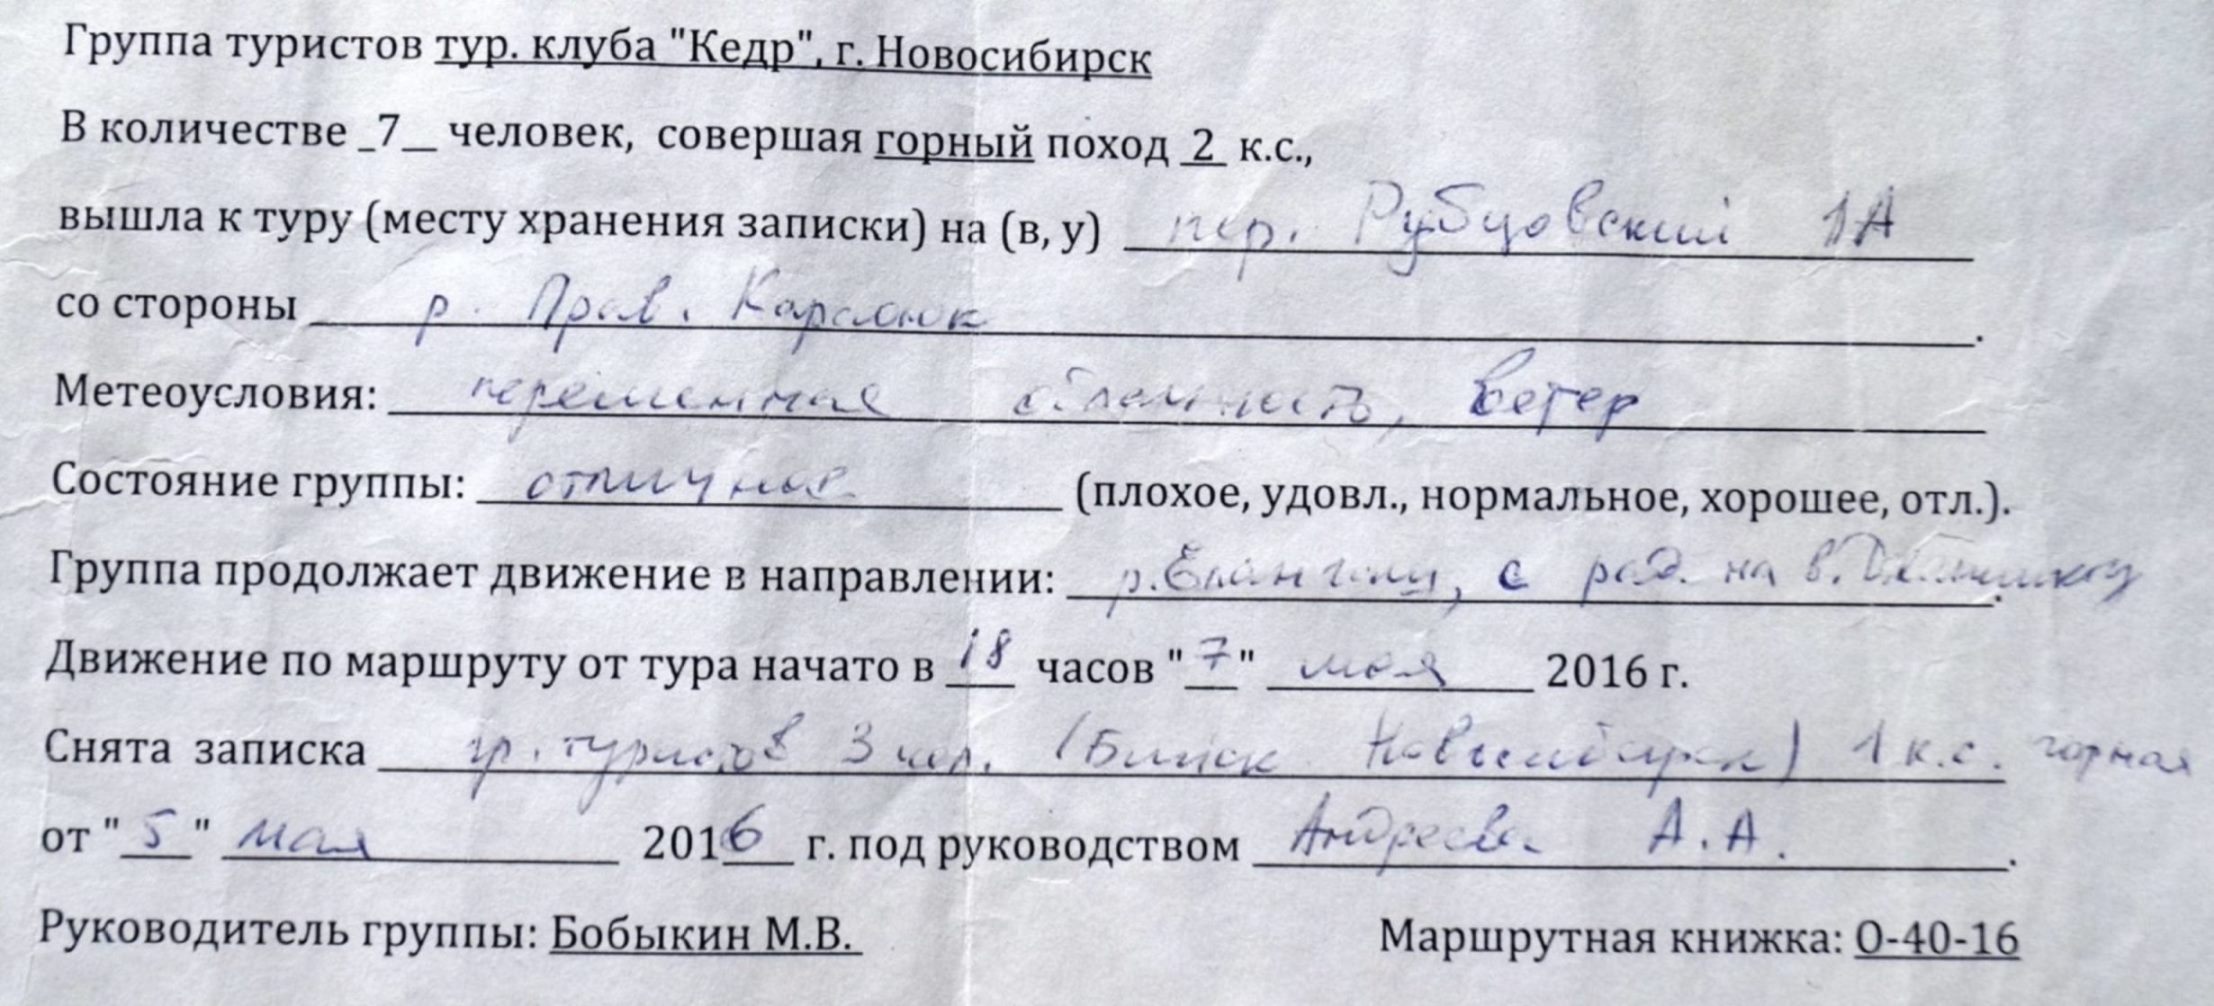 Группа туристов тур. клуба "Кедр", г. Новосибирск
В количестве _7_ человек, совершая горный поход 2 к.с.,
вышла к туру (месту хранения записки) на (в, у) пер. Рубцовский 1А
со стороны р. Прав. Карасюк.
Метеоусловия: переменная облачность, ветер
Состояние группы: отличное (плохое, удовл., нормальное, хорошее, отл.).
Группа продолжает движение в направлении: р. Елангаш, с рад. на в.
Движение по маршруту от тура начато в 18 часов "7" мая 2016 г.
Снята записка гр. туристов 3 чел. (Бийск Новосибирск) 1 к.с. горная
от "5" мая 2016 г. под руководством Андреева А.А.
Руководитель группы: Бобыкин М.В. Маршрутная книжка: О-40-16